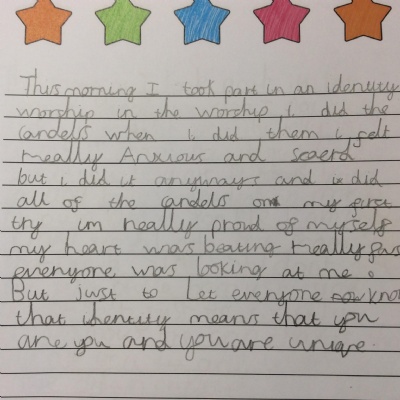 This morning I took part in an idenity
worship in the worship i did the
candels when i did them i felt
really Anxious and scaerd
but i did it anyways and i did
all of the candels on my first
try im really proud of myself
my heart was beating really fas
everyone was looking at me.
But just to Let everyone kno
that identity means that you
are you and you are uniqe.